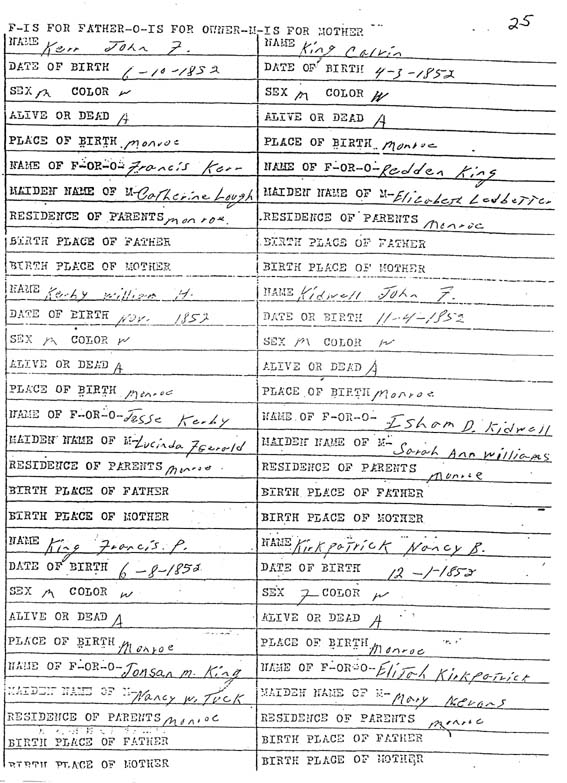 25
F-IS FOR FATHER-O-IS FOR OWNER-M-IS FOR MOTHER
NAME Kerr John F.
DATE OF BIRTH 6-10-1852
SEX M COLOR W
ALIVE OR DEAD A
PLACE OF BIRTH Monroe
NAME OF F-OR-O-Francis Kerr
MAIDEN NAME OF M-Catherine Lough
RESIDENCE OF PARENTS Monroe
BIRTH PLACE OF FATHER
BIRTH PLACE OF MOTHER
NAME Kerby William H.
DATE OF BIRTH Nov. 1852
SEX M COLOR W
ALIVE OR DEAD A
PLACE OF BIRTH Monroe
NAME OF F-OR-O-Jesse Kerby
MAIDEN NAME OF M-Lucinda
RESIDENCE OF PARENTS Monroe
BIRTH PLACE OF FATHER
BIRTH PLACE OF MOTHER
NAME King Francis P.
DATE OF BIRTH 6-8-1852
SEX M COLOR W
ALIVE OR DEAD A
PLACE OF BIRTH Monroe
NAME OF F-OR-O-Jonsan M. King
MAIDEN NAME OF M-Nancy W. Tuck
RESIDENCE OF PARENTS Monroe
BIRTH PLACE OF FATHER
BIRTH PLACE OF MOTHER
NAME King Calvin
DATE OF BIRTH 4-3-1852
SEX M COLOR W
ALIVE OR DEAD A
PLACE OF BIRTH Monroe
NAME OF F-OR-O-Redden King
MAIDEN NAME OF M-Elizabeth Ledbetter
RESIDENCE OF PARENTS Monroe
BIRTH PLACE OF FATHER
BIRTH PLACE OF MOTHER
NAME Kidwell John F.
DATE OR BIRTH 11-4-1852
SEX M COLOR W
ALIVE OR DEAD A
PLACE OF BIRTH Monroe
NAME OF F-OR-O- Isham D. Kidwell
MAIDEN NAME OF M- Sarah Ann Williams
RESIDENCE OF PARENTS Monroe
BIRTH PLACE OF FATHER
BIRTH PLACE OF MOTHER
NAME Kirkpatrick Nancy B.
DATE OF BIRTH 12-1-1852
SEX F COLOR W
ALIVE OR DEAD A
PLACE OF BIRTH Monroe
NAME OF F-OR-O-Elijah Kirkpatrick
MAIDEN NAME OF M-Mary
RESIDENCE OF PARENTS Monroe
BIRTH PLACE OF FATHER
BIRTH PLACE OF MOTHER